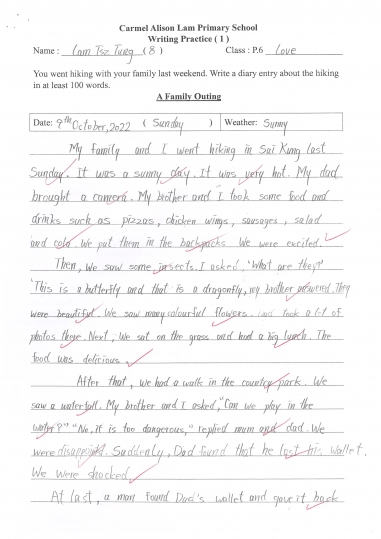 Carmel Alison Lam Primary School
Writing Practice ( 1 )
Name : Lam Tsz Tung ( 8 ) Class : P.6 Love
You went hiking with your family last weekend. Write a diary entry about the hiking
in at least 100 words.
A Family Outing
Date: 9th October, 2022 ( Sunday ) Weather: Sunny
My family and I went hiking in Sai Kung last
Sunday. It was a sunny day. It was very hot. My dad
brought a camera. My brother and I took some food and
drinks such as pizzas, chicken wings, sausages, salad
and cola. We put them in the backpacks. We were excited.
Then, we saw some insects. I asked, "What are they?"
"This is a butterfly and that is a dragonfly, my brother answered. They
were beautiful. We saw many colourful flowers. and took a lot of
photos there. Next, we sat on the grass and had a big lunch. The
food was delicious.
After that, we had a walk in the country park. We
saw a waterfall. My brother and I asked, "Can we play in the
water?" "No, it is too dangerous," replied mum and dad. We
were disappoint. Suddenly, Dad found that he lost his wallet.
We were shocked.
At last, a man found Dad's wallet and gave it back